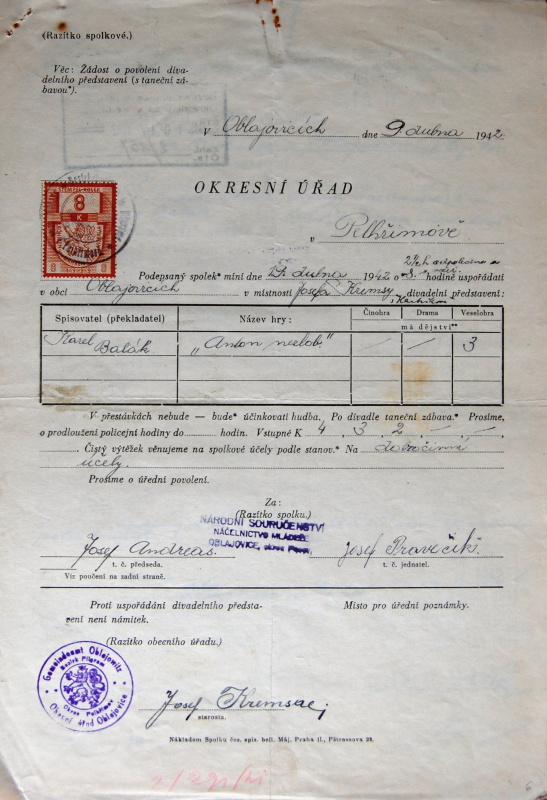 (Razítko spolkové.)
Věc: Žádost o povolení diva-
delního představení (s taneční zá-
bavou*).
v Oblajovicích dne 9. dubna 1942
OKRESNÍ ÚŘAD
STEMPEL-MARKE
8
K
v Pelhřimově
Podepsaný spolek* míní dne dubna 1942 o hodině uspořádati
v obci Oblajovicích v místnosti Josefa Kremsy divadelní představení:
Spisovatel (překladatel) Název hry: Činohra Drama Veselohra
má dějství**
Karel Balák „Anton 3
V přestávkách nebude — bude* účinkovati hudba. Po divadle taneční zábava.* Prosíme,
o prodloužení policejní hodiny do hodin. Vstupné K 4, 3, 2
Čistý výtěžek věnujeme na spolkové účely podle stanov.* Na dobročinné
účely.
Prosíme o úřední povolení.
Za:
(Razítko spolku:)
NÁRODNÍ SOURUČENSTVÍ
NÁČELNICTVO MLÁDEŽE
OBLAJOVICE, okres
Josef Andreas.
t. č. předseda.
Josef
t. č. jednatel.
Viz poučení na zadní straně.
Proti uspořádání divadelního předsta-
vení není námitek.
Místo pro úřední poznámky.
(Razítko obecního úřadu.)
Gemeindeamt Oblajowitz
Bezirk Pilgram
Okres Pelhřimov
Obecní úřad Oblajovice
Josef
starosta.
Nákladem Spolku čes. spis. bell. Máj, Praha II., Pštrossova 23.
6